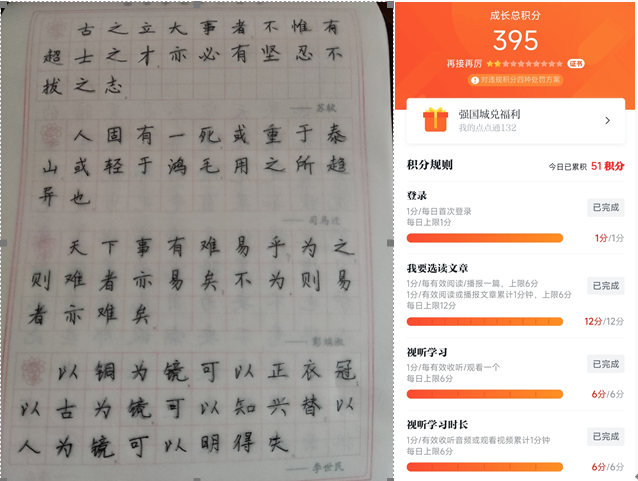 古之立大事者不惟有
超士之才亦必有坚忍不
拔之志
——苏轼
人固有一死或重于泰
山或轻于鸿毛用之所趋
异也
——司马迁
天下事有难易乎为之
则难者亦易矣不为则易
者亦难矣
——彭端淑
以铜为镜可以正衣冠
以古为镜可以知兴替以
人为镜可以明得失
——李世民
成长总积分
395
再接再厉 证书
对违规积分四种处罚方案
强国城兑福利
我的点点通132
积分规则 今日已累积 51 积分
登录
1分/每日首次登录
每日上限1分
已完成
1分/1分
我要选读文章
1分/每有效阅读/播报一篇，上限6分
1分/有效阅读或播报文章累计1分钟，上限6分
每日上限12分
已完成
12分/12分
视听学习
1分/每有效收听/观看一个
每日上限6分
已完成
6分/6分
视听学习时长
1分/有效收听音频或观看视频累计1分钟
每日上限6分
已完成
6分/6分